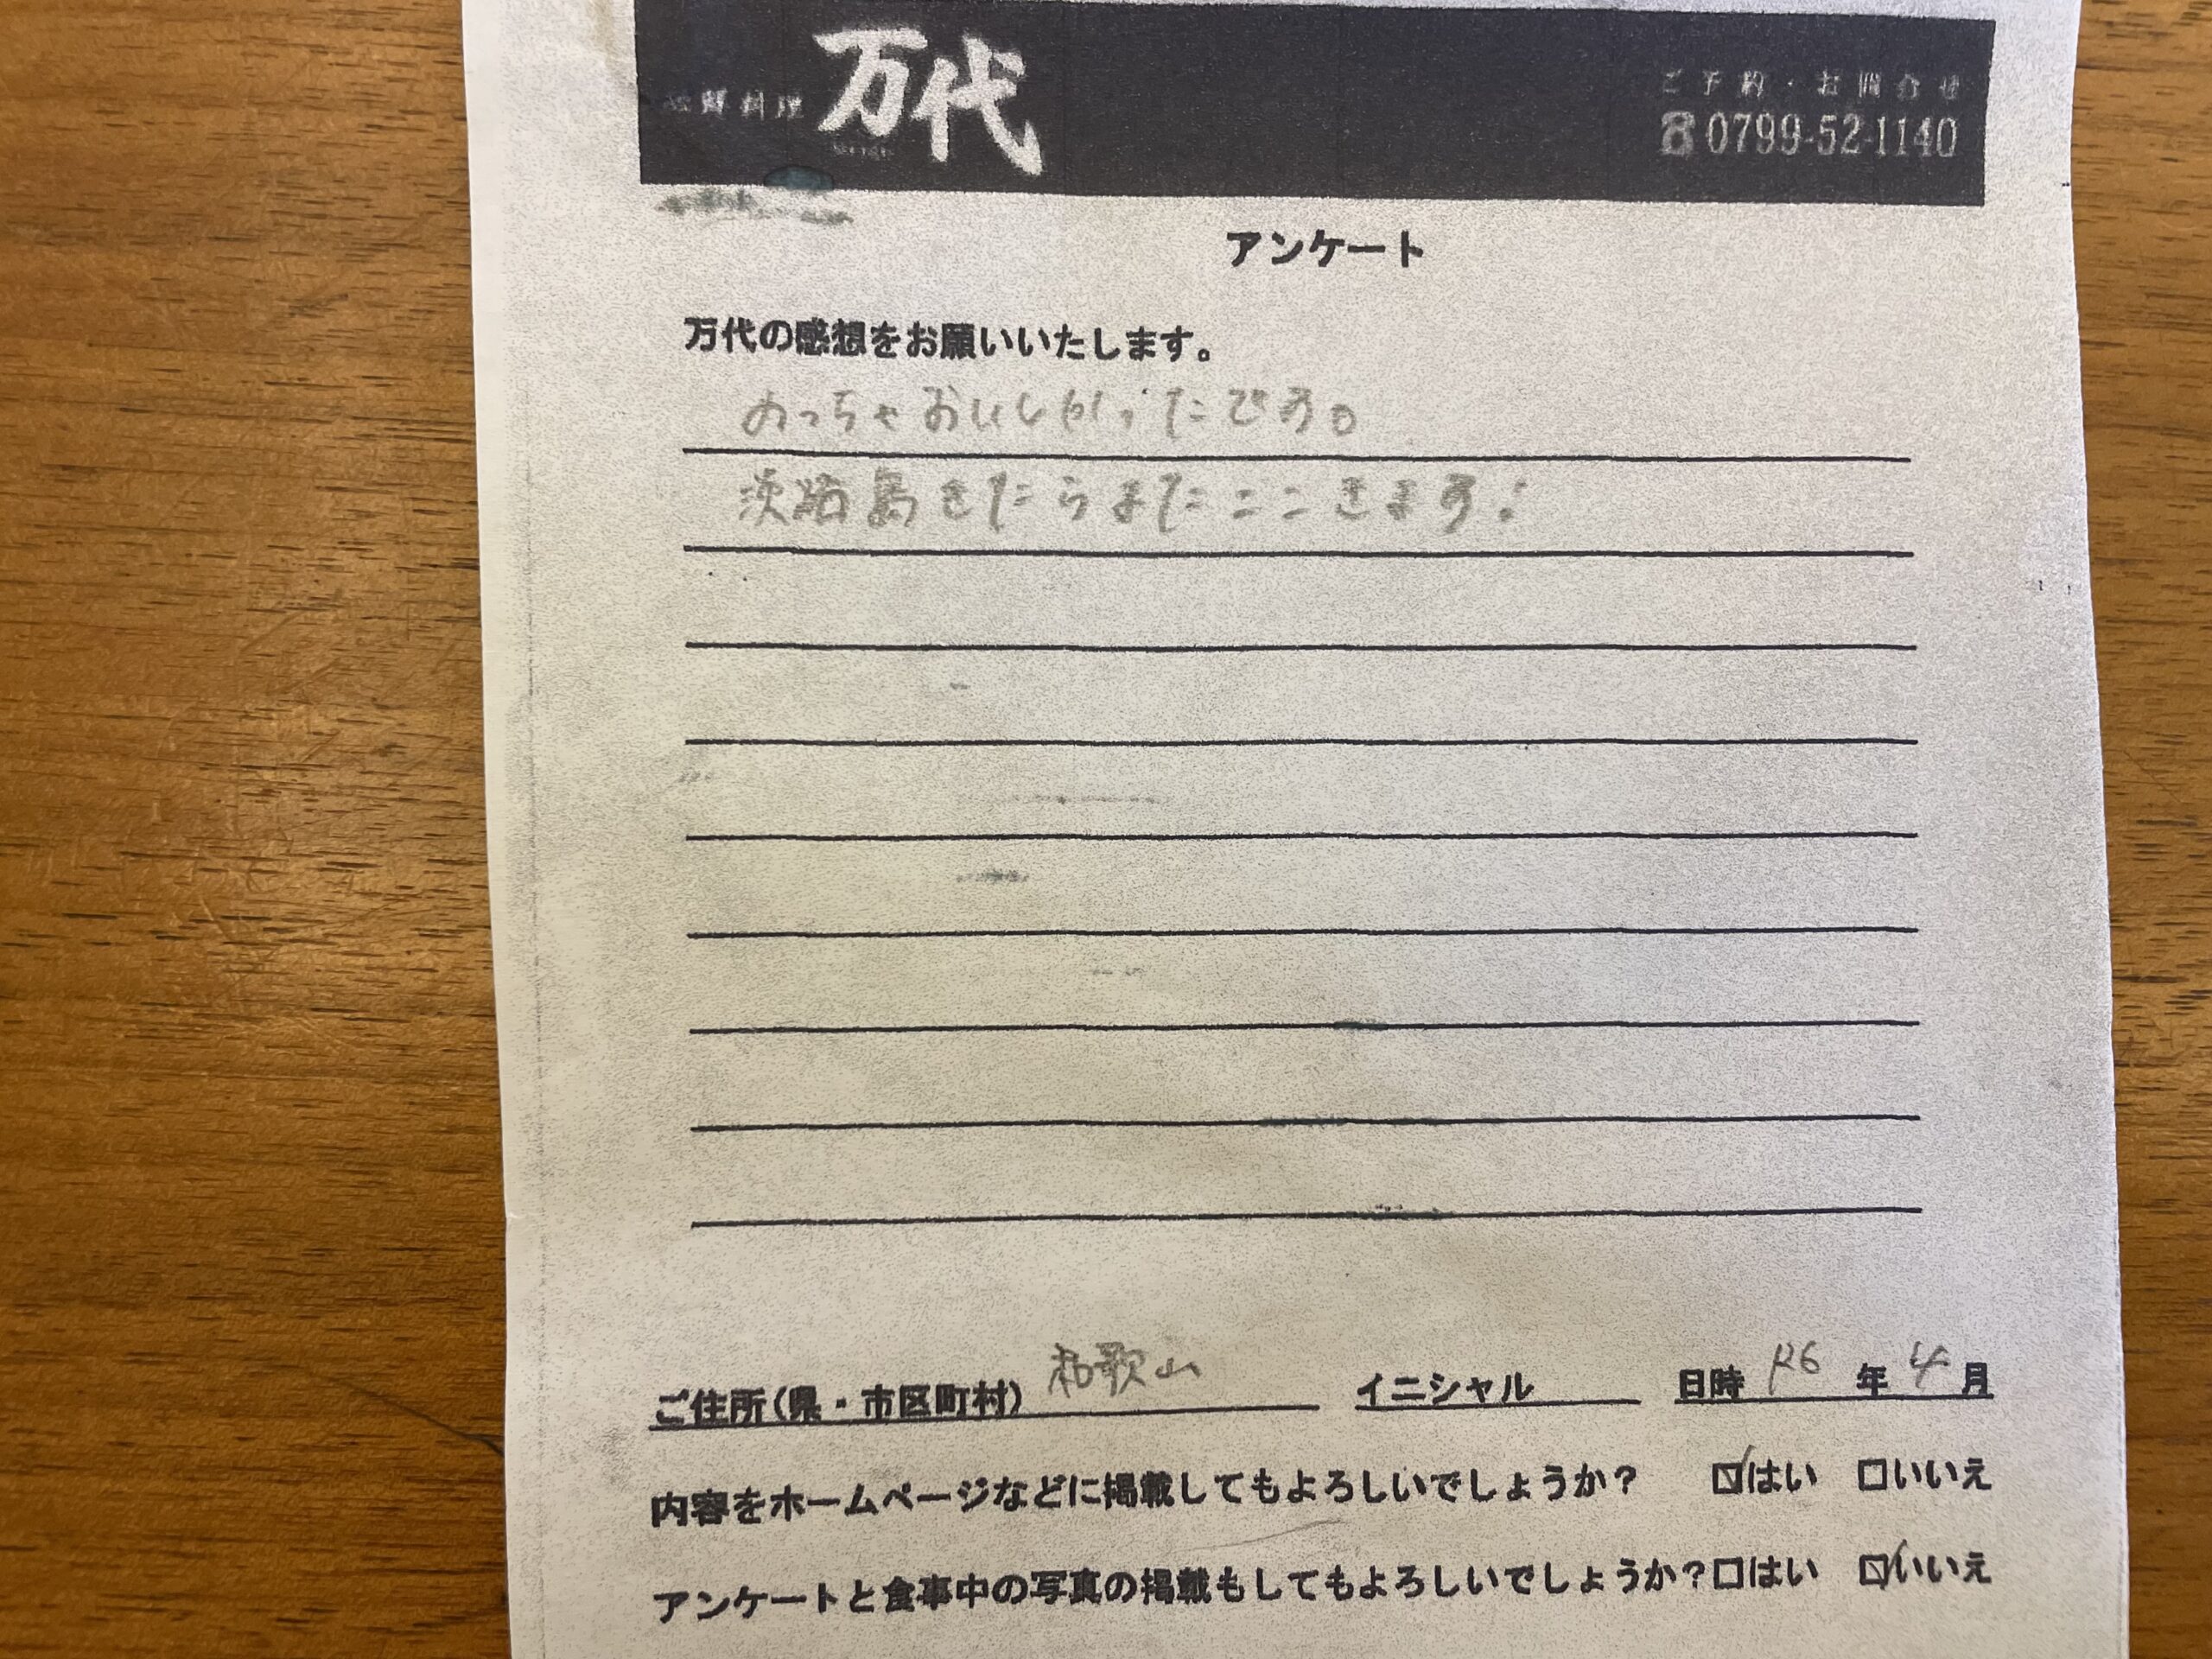 鮮料理 万代
ご予約・お問合せ
☎0799-52-1140
アンケート
万代の感想をお願いいたします。
めっちゃおいしかったです。
淡路島きたらまたここきます!
ご住所(県・市区町村) 和歌山 イニシャル 日時 R6 年 4 月
内容をホームページなどに掲載してもよろしいでしょうか? ☑はい □いいえ
アンケートと食事中の写真の掲載もしてもよろしいでしょうか?□はい ☑いいえ